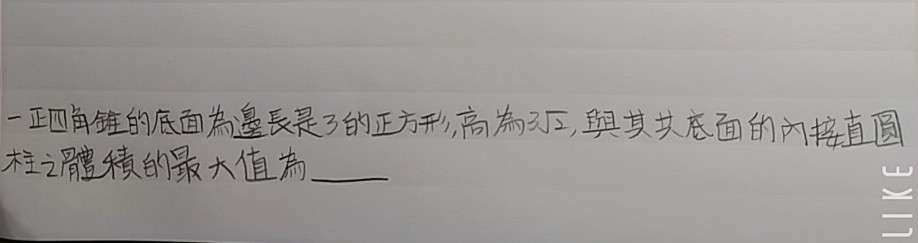 一正四角錐的底面為邊長是3的正方形,高為3√2,與其共底面的內接直圓
柱之體積的最大值為____
LIKE